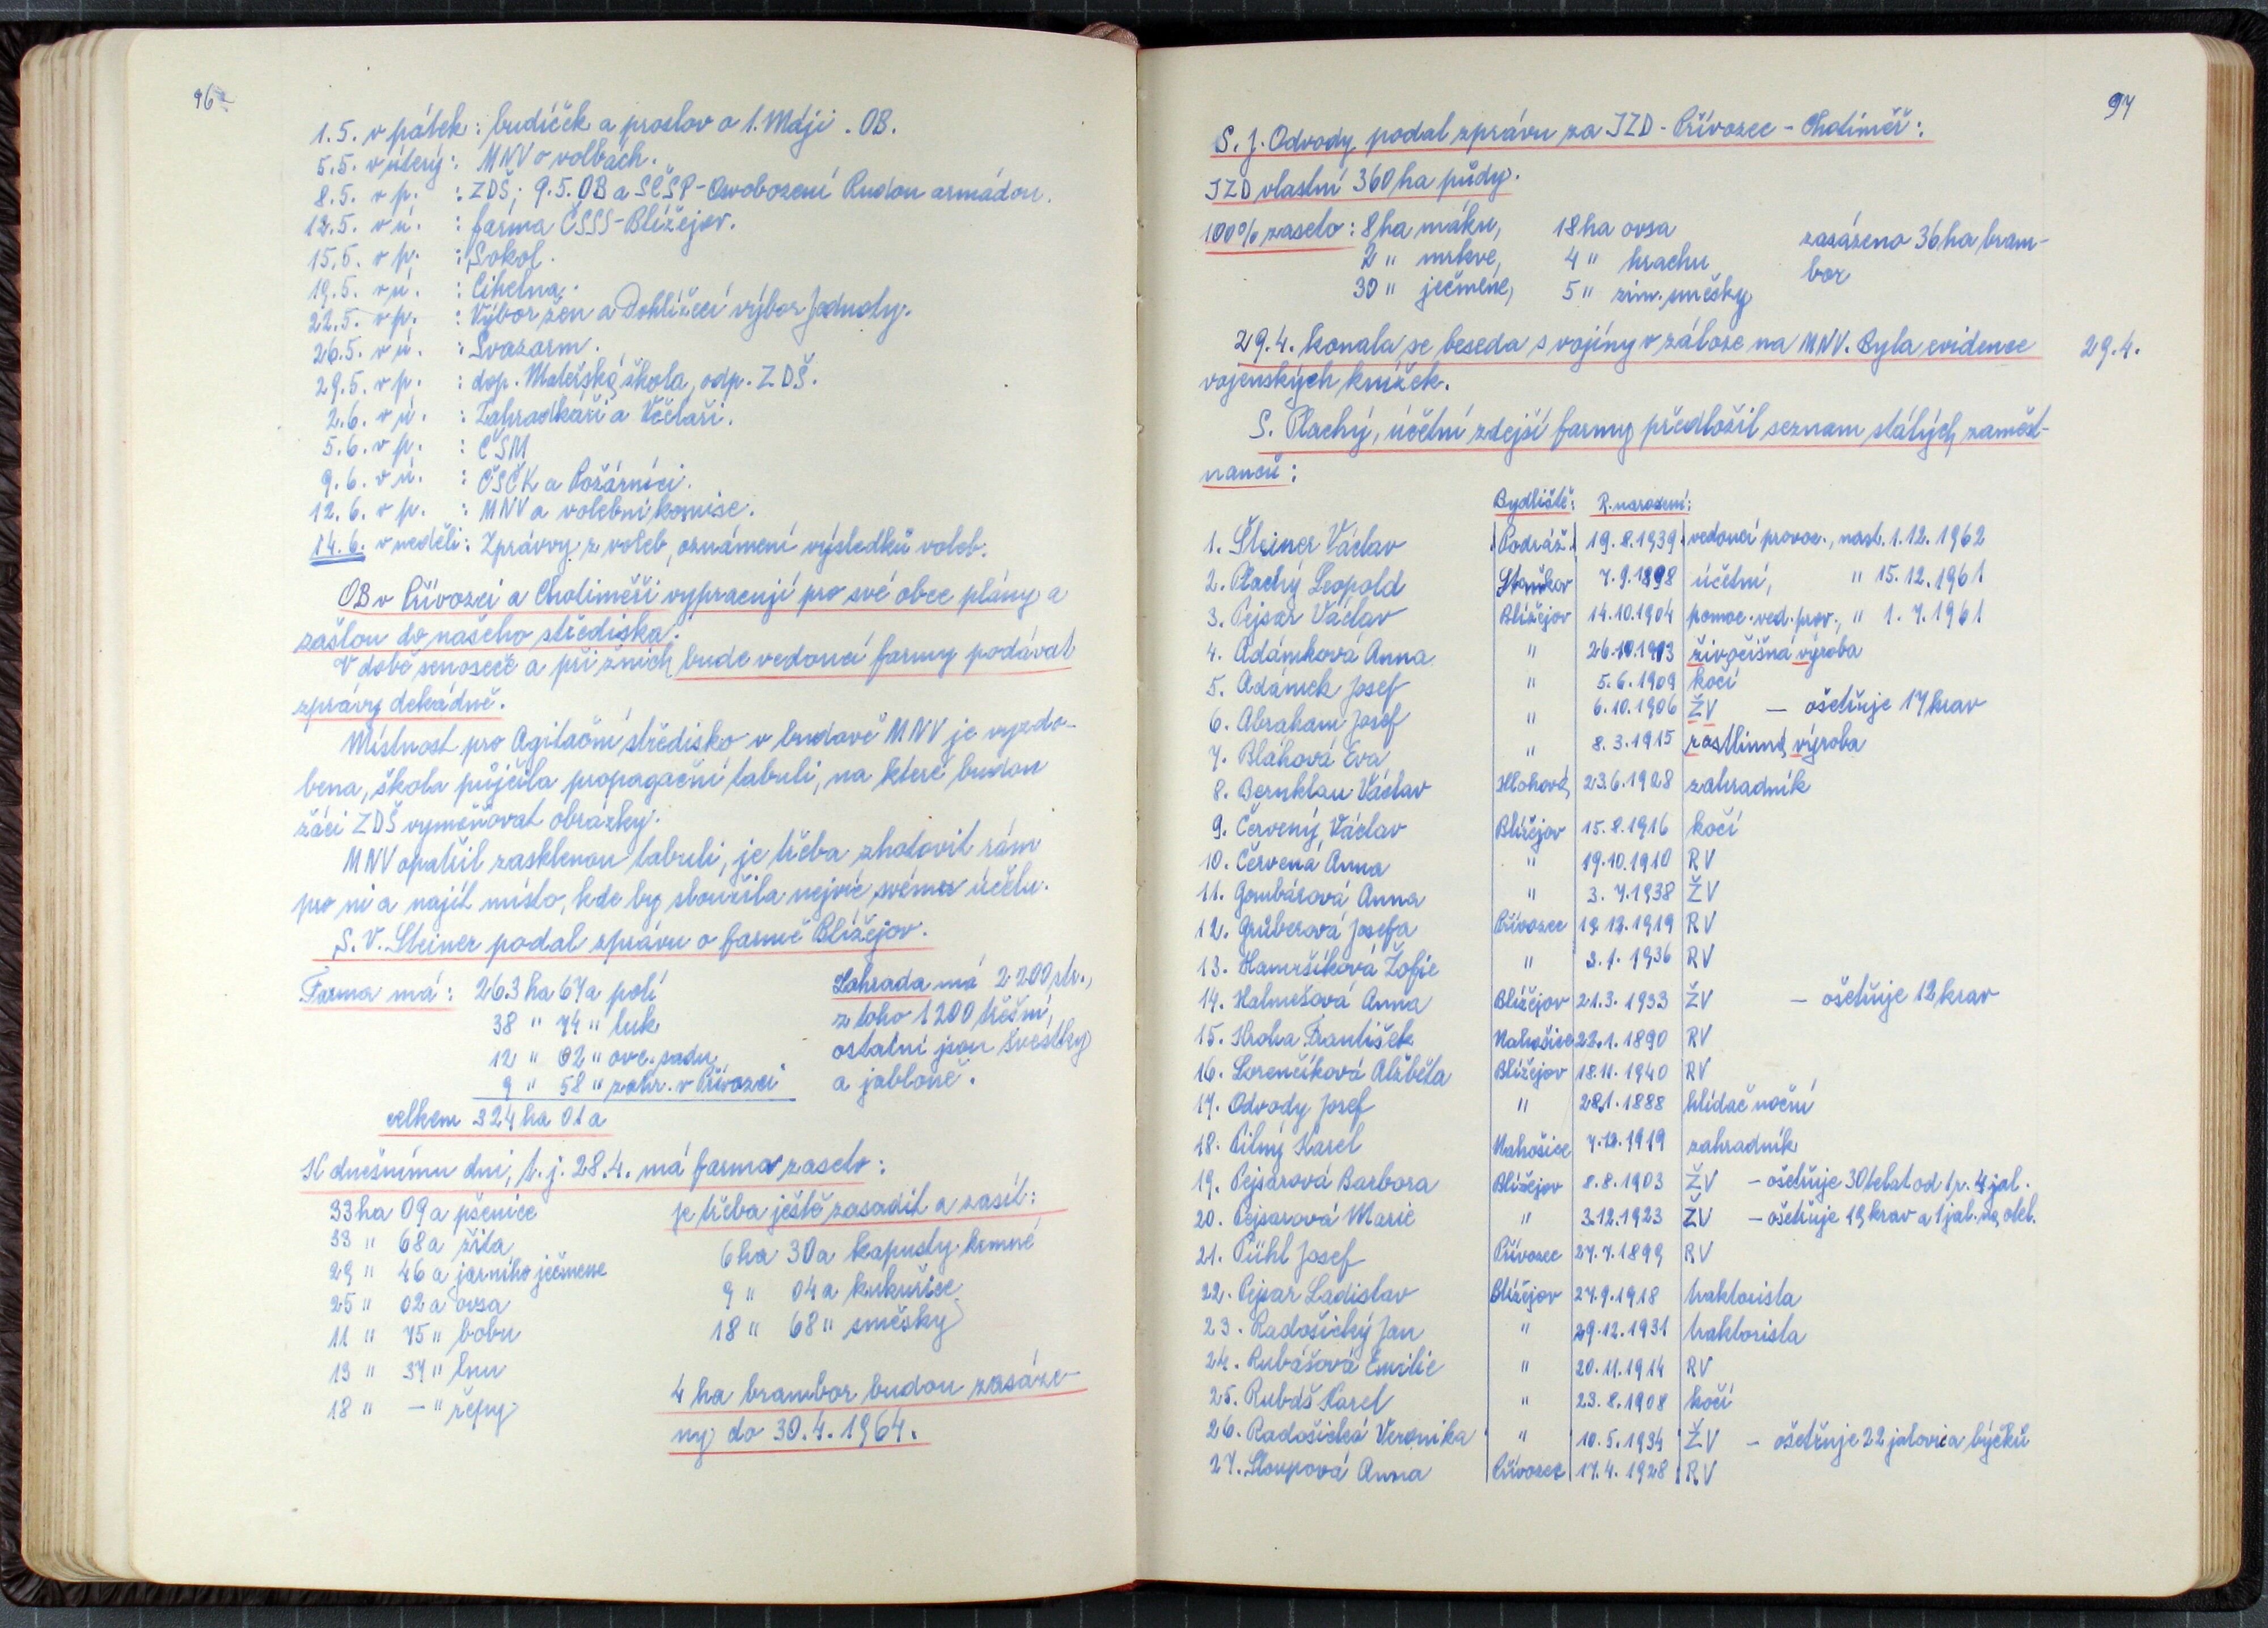 96
1.5. v pátek : budíček a proslov o 1. Máji. OB.
5.5. v úterý : MNV o volbách.
8.5. v p. : ZDŠ; 9.5. OB a SČSP - Osvobození Rudou armádou.
12.5. v ú. : farma ČSSS - Blížejov.
15.5. v p. : Sokol.
19.5. v ú. : Cihelna.
22.5. v p. : Výbor žen a Dohlížecí výbor Jednoty.
26.5. v ú. : Svazarm.
29.5. v p. : dop. Mateřská škola, odp. ZDŠ.
2.6. v ú. : Zahrádkáři a Včelaři.
5.6. v p. : ČSM
9.6. v ú. : ČSČK a Požárníci.
12.6. v p. : MNV a volební komise.
14.6. v neděli : Zprávy z voleb, oznámení výsledků voleb.
OB v Přívozci a Chotiměři vypracují pro své obce plány a
zašlou do našeho střediska.
V době senoseče a při žních bude vedoucí farmy podávat
zprávy dekádně.
Místnost pro Agitační středisko v budově MNV je vyzdo-
bena, škola půjčila propagační tabuli, na které budou
žáci ZDŠ vyměňovat obrázky.
MNV opatřil zasklenou tabuli, je třeba zhotovit rám
pro ni a najít místo, kde by sloužila nejvíc svému účelu.
S. V. Steiner podal zprávu o farmě Blížejov.
Farma má : 263 ha 67 a polí
38 " 74 " luk
12 " 02 " ovc. sadu
9 " 58 " zahr. v Přívozci
celkem 324 ha 01 a
Zahrada má 2200 str.,
z toho 1200 třešní,
ostatní jsou švestky
a jabloně.
K dnešnímu dni, t. j. 28.4. má farma zaseto :
33 ha 09 a pšenice
33 " 68 a žita
29 " 46 a jarního ječmene
25 " 02 a ovsa
11 " 75 " bobu
13 " 37 " lnu
18 " - " řepy
je třeba ještě zasadit a zasít :
6 ha 30 a kapusty krmné
9 " 04 a kukuřice
18 " 68 " směsky
4 ha brambor budou zasáze-
ny do 30.4.1964.
97
S. J. Odvody podal zprávu za JZD - Přívozec - Chotiměř :
JZD vlastní 360 ha půdy.
100% zaseto : 8 ha máku, 18 ha ovsa zasázeno 36 ha bram-
2 " mrkve, 4 " hrachu bor
30 " ječmene, 5 " zim. směsky
29.4. konala se beseda s vojíny v záloze na MNV. Byla evidence 29.4.
vojenských knížek.
S. Plachý, účetní zdejší farmy předložil seznam stálých zaměst-
nanců :
Bydliště : R. narození :
1. Šteiner Václav Podráž. 19.8.1939 vedoucí provoz., nast. 1.12.1962
2. Plachý Leopold Staňkov 7.9.1898 účetní, " 15.12.1961
3. Pejsar Václav Blížejov 14.10.1904 pomoc. ved. prov., " 1.7.1961
4. Adámková Anna " 26.10.1913 živočišná výroba
5. Adámek Josef " 5.6.1909 kočí
6. Abraham Josef " 6.10.1906 ŽV - ošetřuje 17 krav
7. Bláhová Eva " 8.3.1915 rostlinná výroba
8. Bernklau Václav Hlohová 23.6.1928 zahradník
9. Červený Václav Blížejov 15.8.1916 kočí
10. Červená Anna " 19.10.1910 RV
11. Gombárová Anna " 3.7.1938 ŽV
12. Grüberová Josefa Přívozec 19.12.1919 RV
13. Hamršíková Žofie " 3.1.1936 RV
14. Halmešová Anna Blížejov 21.3.1933 ŽV - ošetřuje 12 krav
15. Hroha František Nahošice 22.1.1890 RV
16. Lorenčíková Alžběta Blížejov 18.11.1940 RV
17. Odvody Josef " 28.1.1888 hlídač noční
18. Pilný Karel Nahošice 7.12.1919 zahradník
19. Pejsarová Barbora Blížejov 8.8.1903 ŽV - ošetřuje 30 telat od 1 r. 4 jal.
20. Pejsarová Marie " 3.12.1923 ŽV - ošetřuje 19 krav a 1 jal. na otel.
21. Pühl Josef Přívozec 27.7.1899 RV
22. Pejsar Ladislav Blížejov 27.9.1918 traktorista
23. Radošický Jan " 29.12.1931 traktorista
24. Rubášová Emilie " 20.11.1914 RV
25. Rubáš Karel " 23.8.1908 kočí
26. Radošická Veronika " 10.5.1934 ŽV - ošetřuje 22 jalovic a býčků
27. Sloupová Anna Přívozec 17.4.1928 RV